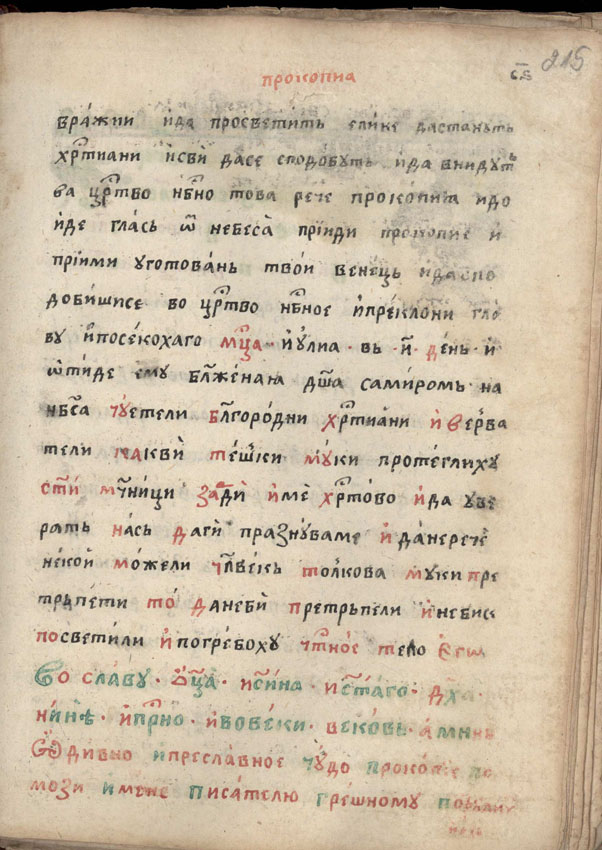 прокопиа
215
вра́жии и҆да просвети́ть елике дастанꙋть
хрⷭ҇тиани и҆сви́ дасе сподобꙋть и҆да внидꙋтъ
ва црⷭ҇тво нбⷭ҇но това рече прокопиꙗ и҆до
и҆де гла́сь ѿ небеса̀ прїиди прокопие и
прїими уготова́нь твои венець
доби́шисе во црⷭ҇тво нбⷭ҇ное и҆прекло́ни гла
вꙋ и҆посеко́хаго мцⷭ҇а и҆ꙋлиа · въ · и҃ · де́нь · и҆
ѿиде емꙋ блже́наꙗ дш҃а самиромь · на
нбⷭ҇са чꙋетели бл҃городни хрⷭ҇тиани и҆ верꙋва
тели такви́ те́шки мꙋки проте́глихꙋ
ст҃и мч҃ници за́ди и҆мѐ хрⷭ҇то́во и҆да ꙋве
рать на́сь даги празнꙋ́ваме и҆ да́неречѐ
не́кои мо́жели чл҃ве́кь то́лкова мꙋки пре
трьпе́ти то̀ данеби̂ претрьпели и҆небих
посвети́ли и҆погребохꙋ чⷭ҇тно́е тело его
Во сла́вꙋ · ѻц҃а · и҆сн҃а · и҆ст҃аго · дх҃а
ни́нѣ · и҆прⷭ҇но · и҆вовеки · вековь · а҆минь
Ѽ дивно и҆пресла́вное чꙋ́до прокопие по
мози и҆мене писа́телю грешномꙋ